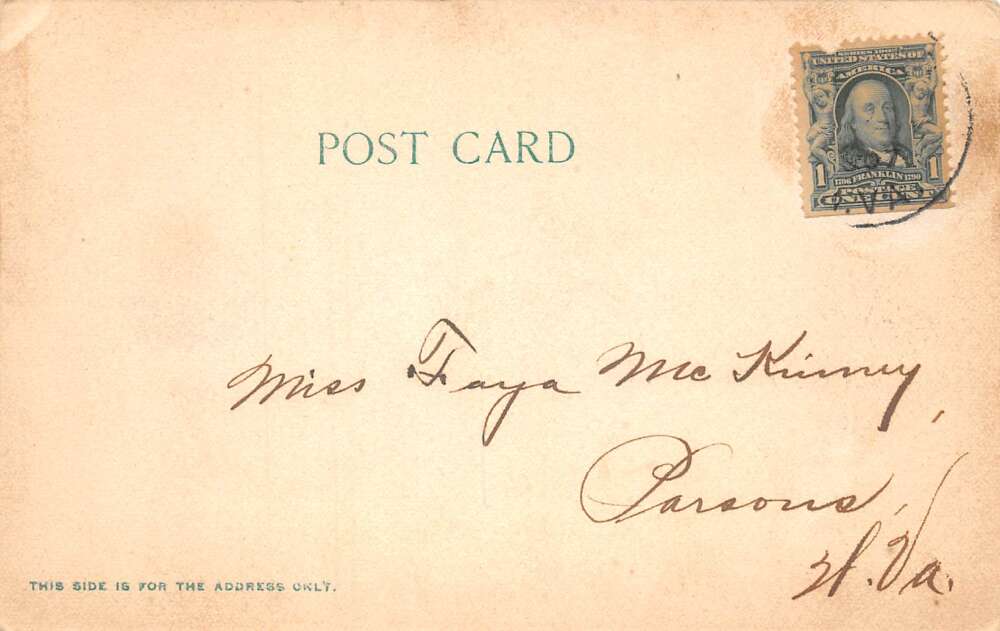 SERIES 1902
UNITED STATES OF
AMERICA
POST CARD
1 1706 FRANKLIN 1790 1
POSTAGE
ONE CENT
VA.
Miss Faya McKinney,
Parsons,
W. Va.
THIS SIDE IS FOR THE ADDRESS ONLY.